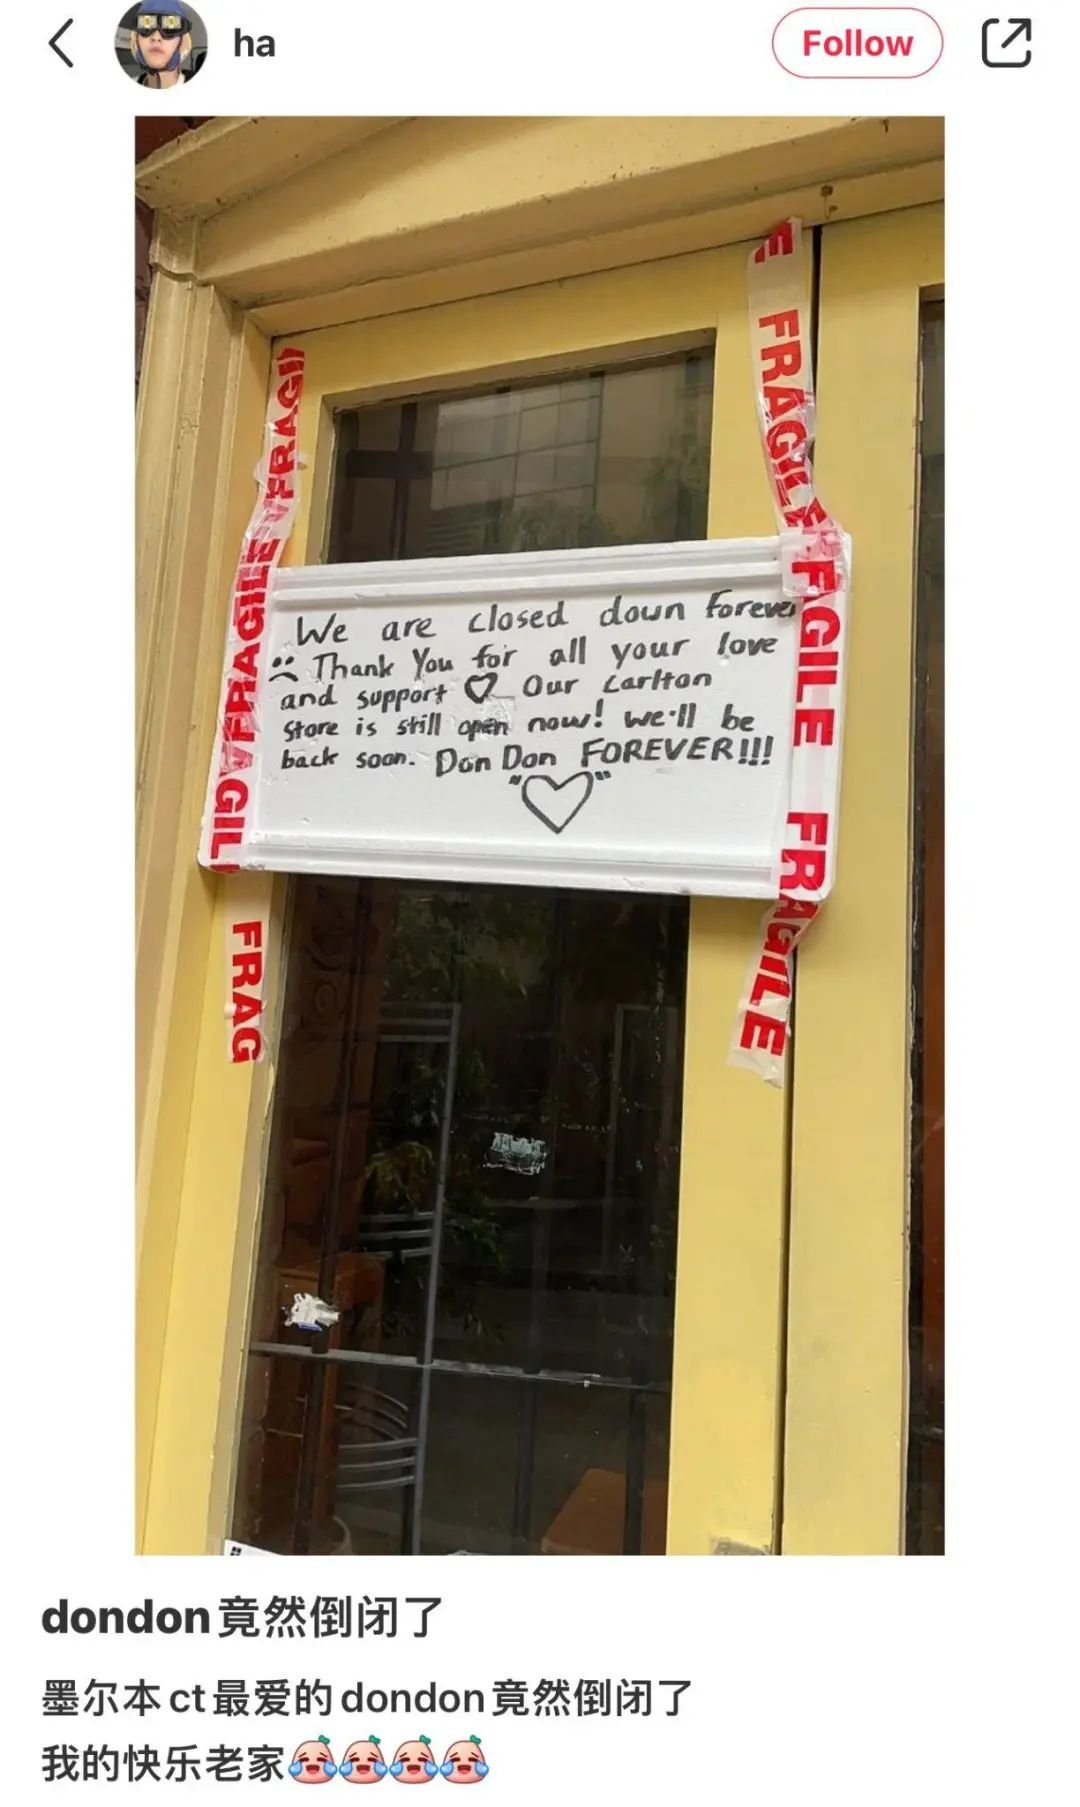 ha
Follow
E FRAGILE FRAGILE FRAGILE
FRAGILE FRAGI
We are closed down forever
:( Thank You for all your love
and support ♡ Our Carlton
Store is still open now! we'll be
back soon. Don Don FOREVER!!!
"♡"
FRAG
dondon竟然倒闭了
墨尔本ct最爱的dondon竟然倒闭了
我的快乐老家